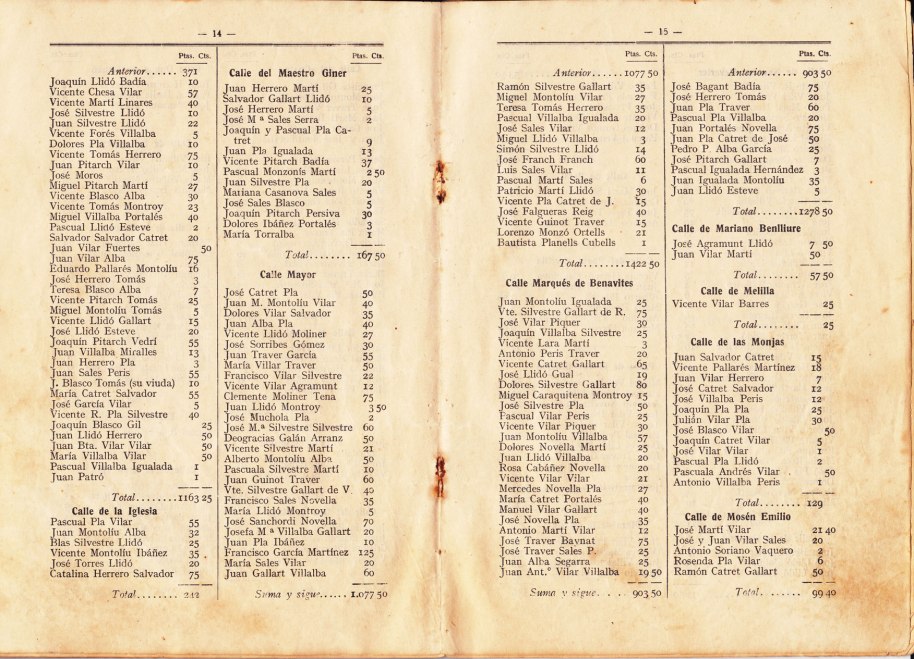 — 14 —
Ptas. Cts.
Anterior...... 371
Joaquín Llidó Badía 10
Vicente Chesa Vilar 57
Vicente Martí Linares 40
José Silvestre Llidó 10
Juan Silvestre Llidó 22
Vicente Forés Villalba 5
Dolores Pla Villalba 10
Vicente Tomás Herrero 75
Juan Pitarch Vilar 10
José Moros 5
Miguel Pitarch Martí 27
Vicente Blasco Alba 30
Vicente Tomás Montroy 23
Miguel Villalba Portalés 40
Pascual Llidó Esteve 2
Salvador Salvador Catret 20
Juan Vilar Fuertes 50
Juan Vilar Alba 75
Eduardo Pallarés Montolíu 16
José Herrero Tomás 3
Teresa Blasco Alba 7
Vicente Pitarch Tomás 25
Miguel Montolíu Tomás 5
Vicente Llidó Gallart 15
José Llidó Esteve 20
Joaquín Pitarch Vedrí 55
Juan Villalba Miralles 13
Juan Herrero Pla 3
Juan Sales Peris 55
J. Blasco Tomás (su viuda) 10
María Catret Salvador 55
José García Vilar 5
Vicente R. Pla Silvestre 40
Joaquín Blasco Gil 25
Juan Llidó Herrero 50
Juan Bta. Vilar Vilar 50
María Villalba Vilar 50
Pascual Villalba Igualada 1
Juan Patró 1
Total........1163 25
Calle de la Iglesia
Pascual Pla Vilar 55
Juan Montolíu Alba 32
Blas Silvestre Llidó 25
Vicente Montolíu Ibáñez 35
José Torres Llidó 20
Catalina Herrero Salvador 75
Total........ 242
Ptas. Cts.
Calle del Maestro Giner
Juan Herrero Martí 25
Salvador Gallart Llidó 10
José Herrero Martí 5
José Mª Sales Serra 2
Joaquín y Pascual Pla Ca-
tret 9
Juan Pla Igualada 13
Vicente Pitarch Badía 37
Pascual Monzonís Martí 2 50
Juan Silvestre Pla 20
Mariana Casanova Sales 1
José Sales Blasco 5
Joaquín Pitarch Persiva 30
Dolores Ibáñez Portalés 3
María Torralba 1
Total........ 167 50
Calle Mayor
José Catret Pla 50
Juan M. Montolíu Vilar 40
Dolores Vilar Salvador 35
Juan Alba Pla 40
Vicente Llidó Moliner 27
José Sorribes Gómez 30
Juan Traver García 55
María Villar Traver 50
Francisco Vilar Silvestre 22
Vicente Vilar Agramunt 12
Clemente Moliner Tena 75
Juan Llidó Montroy 3 50
José Muchola Pla 2
José M.ª Silvestre Silvestre 60
Deogracias Galán Arranz 50
Vicente Silvestre Martí 21
Alberto Montolíu Alba 50
Pascuala Silvestre Martí 10
Juan Guinot Traver 60
Vte. Silvestre Gallart de V 40
Francisco Sales Novella 35
María Llidó Montroy 5
José Sanchordi Novella 70
Josefa Mª Villalba Gallart 20
Juan Pla Ibáñez 10
Francisco García Martínez 125
María Sales Vilar 20
Juan Gallart Villalba 60
Suma y sigue...... 1.077 50
— 15 —
Ptas. Cts.
Anterior......1077 50
Ramón Silvestre Gallart 35
Miguel Montolíu Vilar 27
Teresa Tomás Herrero 35
Pascual Villalba Igualada 20
José Sales Vilar 12
Miguel Llidó Villalba 3
Simón Silvestre Llidó 14
José Franch Franch 60
Luis Sales Vilar 11
Pascual Martí Sales 6
Patricio Martí Llidó 30
Vicente Pla Catret de J. 15
José Falgueras Reig 40
Vicente Guinot Traver 15
Lorenzo Monzó Ortells 21
Bautista Planells Cubells 1
Total........1422 50
Calle Marqués de Benavites
Juan Montolíu Igualada 25
Vte. Silvestre Gallart de R. 75
José Vilar Piquer 30
Joaquín Villalba Silvestre 25
Vicente Lara Martí 3
Antonio Peris Traver 20
Vicente Catret Gallart 65
José Llidó Gual 19
Dolores Silvestre Gallart 80
Miguel Caraquitena Montroy 15
José Silvestre Pla 50
Pascual Vilar Peris 25
Vicente Vilar Piquer 30
Juan Montolíu Villalba 57
Dolores Novella Martí 25
Juan Llidó Villalba 20
Rosa Cabáñez Novella 20
Vicente Vilar Vilar 21
Mercedes Novella Pla 27
María Catret Portalés 40
Manuel Vilar Gallart 40
José Novella Pla 35
Antonio Martí Vilar 12
José Traver Baynat 75
José Traver Sales P. 25
Juan Alba Segarra 25
Juan Ant.º Vilar Villalba 19 50
Suma y sigue. . . . 903 50
Ptas. Cts.
Anterior...... 903 50
José Bagant Badía 75
José Herrero Tomás 20
Juan Pla Traver 60
Pascual Pla Villalba 20
Juan Portalés Novella 75
Juan Pla Catret de José 50
Pedro P. Alba García 25
José Pitarch Gallart 7
Pascual Igualada Hernández 3
Juan Igualada Montolíu 35
Juan Llidó Esteve 5
Total........1278 50
Calle de Mariano Benlliure
José Agramunt Llidó 7 50
Juan Vilar Martí 50
Total........ 57 50
Calle de Melilla
Vicente Vilar Barres 25
Total........ 25
Calle de las Monjas
Juan Salvador Catret 15
Vicente Pallarés Martínez 18
Juan Vilar Herrero 7
José Catret Salvador 12
José Villalba Peris 12
Joaquín Pla Pla 25
Julián Vilar Pla 30
José Blasco Vilar 50
Joaquín Catret Vilar 5
José Vilar Vilar 1
Pascual Pla Llidó 2
Pascuala Andrés Vilar 50
Antonio Villalba Peris 1
Total........ 129
Calle de Mosén Emilio
José Martí Vilar 21 40
José y Juan Vilar Sales 20
Antonio Soriano Vaquero 2
Rosenda Pla Vilar 6
Ramón Catret Gallart 50
Total. ....... 99 40